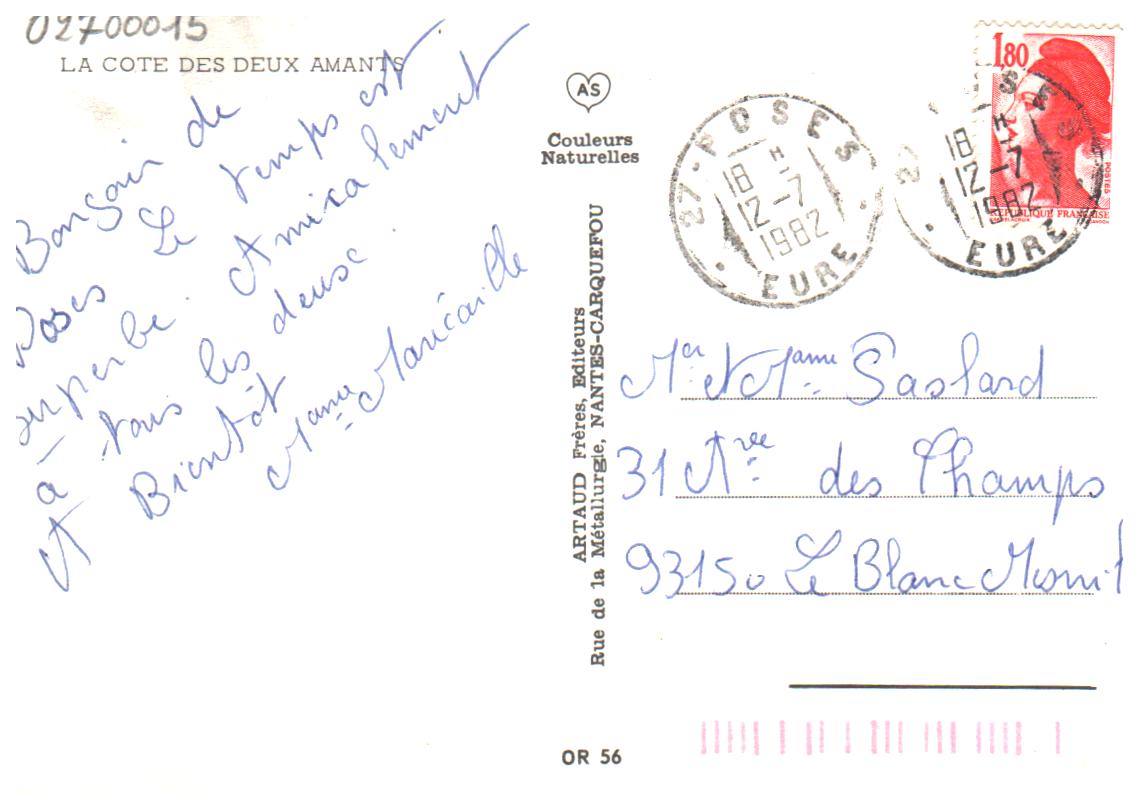 02700015
LA COTE DES DEUX AMANTS
Bonsoir de
Poses Le temps est
superbe. Amicalement
à tous les deux.
Et Bientôt
Mame
AS
Couleurs
Naturelles
ARTAUD Frères, Editeurs
Rue de la Métallurgie, NANTES-CARQUEFOU
OR 56
27-POSES
18 H
12-7
1982
EURE
27 - POSES
18 H
12-7
1982
EURE
1,80
POSTES
REPUBLIQUE FRANÇAISE
Mer et Mame Gaslard
31 Avee des Champs
93150 Le Blanc Mesnil